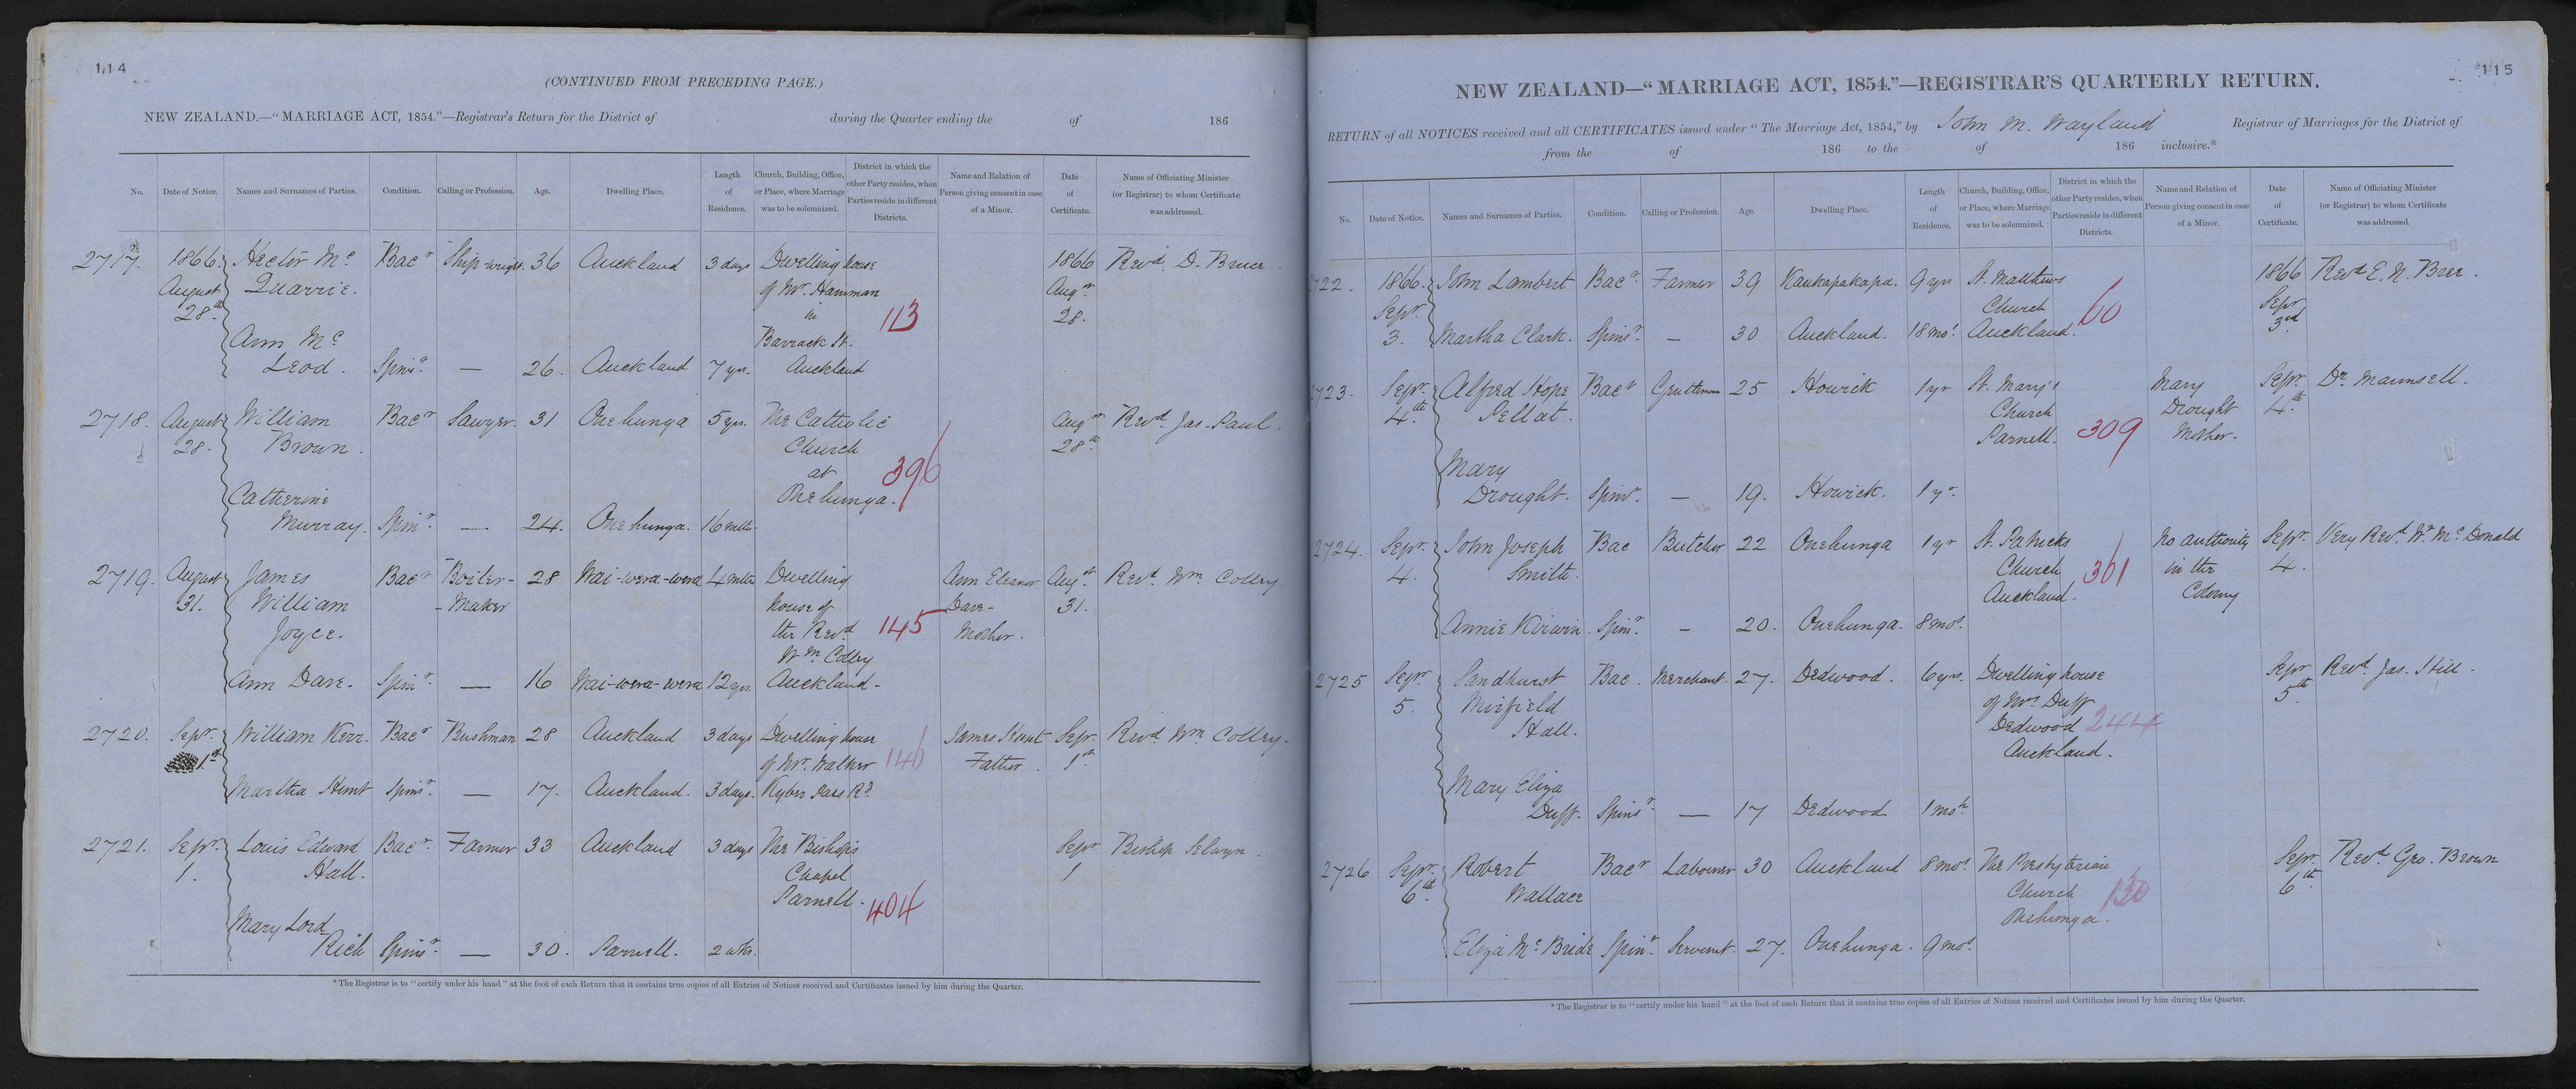 114
(CONTINUED FROM PRECEDING PAGE.)
NEW ZEALAND.—"MARRIAGE ACT, 1854."—Registrar's Return for the District of during the Quarter ending the of 186
No. Date of Notice. Names and Surnames of Parties. Condition. Calling or Profession. Age. Dwelling Place. Length of Residence. Church, Building, Office, or Place, where Marriage was to be solemnized. District in which the other Party resides, when Parties reside in different Districts. Name and Relation of Person giving consent in case of a Minor. Date of Certificate. Name of Officiating Minister (or Registrar) to whom Certificate was addressed.
2717. 1866. Hector Mc Bacr Ship-wright. 36 Auckland 3 days Dwelling house 1866 Revd. D. Bruce.
August Quarrie. of Mr. Hamman Augst
28th in 113 28.
Ann Mc Barrack St.
Leod. Spinr. — 26. Auckland 7 yrs. Auckland
2718. August William Bacr Sawyer. 31 Onehunga 5 yrs. The Catholic Augst Revd. Jas. Paul.
28. Brown. Church 28th
at 396
Catherine Onehunga.
Murray. Spinr. — 24. Onehunga. 16 mths.
2719. August James Bacr Boiler- 28 Wai-wera-wera 4 mths Dwelling Ann Eleanor Augst Revd. Wm. Colley.
31. William -Maker house of Dare- 31.
Joyce. the Revd 145 Mother.
Wm Colley
Ann Dare. Spinr. — 16 Wai-wera-wera 12 yrs. Auckland.
2720. Sepr. William Kerr. Bacr Bushman 28 Auckland 3 days Dwelling house James Hunt Sepr. Revd. Wm. Colley.
1st of Mr. Walker 146 Father. 1st
Martha Hunt Spinr. — 17. Auckland. 3 days. Kyber Pass Rd
2721. Sepr. Louis Edward Bacr. Farmer 33 Auckland 3 days The Bishop's Sepr Bishop Selwyn.
1. Hall. Chapel 1
Parnell. 404
Mary Lord
Rich Spinr. — 30. Parnell. 2 wks.
*The Registrar is to "certify under his hand" at the foot of each Return that it contains true copies of all Entries of Notices received and Certificates issued by him during the Quarter.
115
NEW ZEALAND—"MARRIAGE ACT, 1854."—REGISTRAR'S QUARTERLY RETURN.
RETURN of all NOTICES received and all CERTIFICATES issued under "The Marriage Act, 1854," by John M. Wayland Registrar of Marriages for the District of
from the of 186 to the of 186 inclusive.*
No. Date of Notice. Names and Surnames of Parties. Condition. Calling or Profession. Age. Dwelling Place. Length of Residence. Church, Building, Office, or Place, where Marriage was to be solemnized. District in which the other Party resides, when Parties reside in different Districts. Name and Relation of Person giving consent in case of a Minor. Date of Certificate. Name of Officiating Minister (or Registrar) to whom Certificate was addressed.
2722. 1866. John Lambert Bacr. Farmer 39 Kaukapakapa. 9 yrs St. Matthews 1866 Revd E. N. Bree.
Sepr. Church 60 Sepr
3. Martha Clark. Spinr. — 30 Auckland. 18 mos. Auckland. 3rd
2723. Sepr. Alfred Hope Bacr Gentleman 25 Howick 1 yr St. Mary's Mary Sepr. Dr. Maunsell.
4th Pellat. Church Drought 4th
Parnell. 309 Mother.
Mary
Drought. Spinr. — 19. Howick. 1 yr.
2724. Sepr. John Joseph Bac Butcher 22 Onehunga 1 yr St. Patricks No authority Sepr. Very Revd. Wr. McDonald
4. Smith. Church 301 in the 4.
Auckland. Colony
Annie Kirwin. Spinr. — 20. Onehunga. 8 mos.
2725 Sepr. Sandhurst Bac. Merchant. 27. Dedwood. 6 yrs. Dwelling house Sepr Revd. Jas. Hill.
5. Mirfield of Mrs Duff 5th
Hall. Dedwood 244
Auckland.
Mary Eliza
Duff. Spinr. — 17 Dedwood 1 moh
2726 Sepr. Robert Bacr Labourer 30 Auckland 8 mos The Presbyterian Sepr. Revd. Geo. Brown
6th. Wallace Church 150 6th
Onehunga.
Eliza McBride Spinr. Servant. 27. Onehunga. 9 mos.
*The Registrar is to "certify under his hand" at the foot of each Return that it contains true copies of all Entries of Notices received and Certificates issued by him during the Quarter.